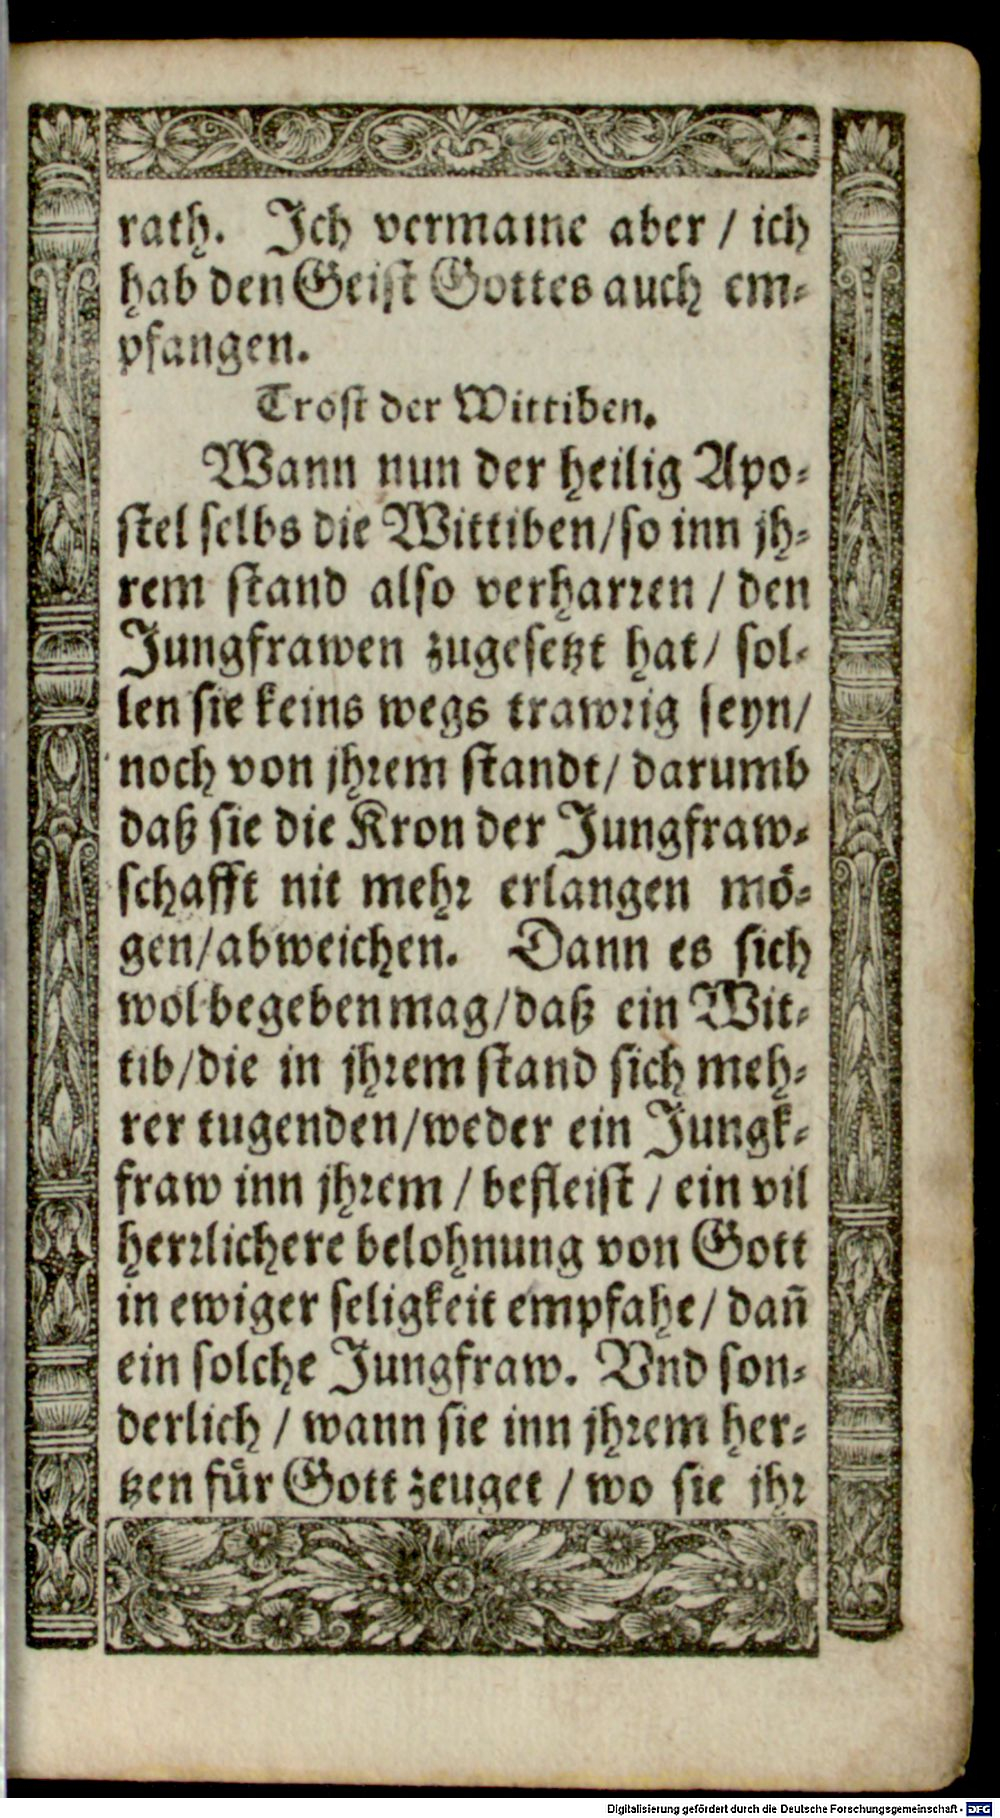 rath. Ich vermaine aber / ich
hab den Geist Gottes auch em-
pfangen.
Trost der Wittiben.
Wann nun der heilig Apo-
stel selbs die Wittiben/so inn jh-
rem stand also verharren / den
Jungfrawen zugesetzt hat/ sol-
len sie keins wegs trawrig seyn/
noch von jhrem standt/ darumb
daß sie die Kron der Jungfraw-
schafft nit mehr erlangen mö-
gen/abweichen. Dann es sich
wol begeben mag/daß ein Wit-
tib/die in jhrem stand sich meh-
rer tugenden/weder ein Jungk-
fraw inn jhrem / befleist / ein vil
herrlichere belohnung von Gott
in ewiger seligkeit empfahe/ dañ
ein solche Jungfraw. Vnd son-
derlich / wann sie inn jhrem her-
tzen für Gott zeuget / wo sie jhr
Digitalisierung gefördert durch die Deutsche Forschungsgemeinschaft - DFG